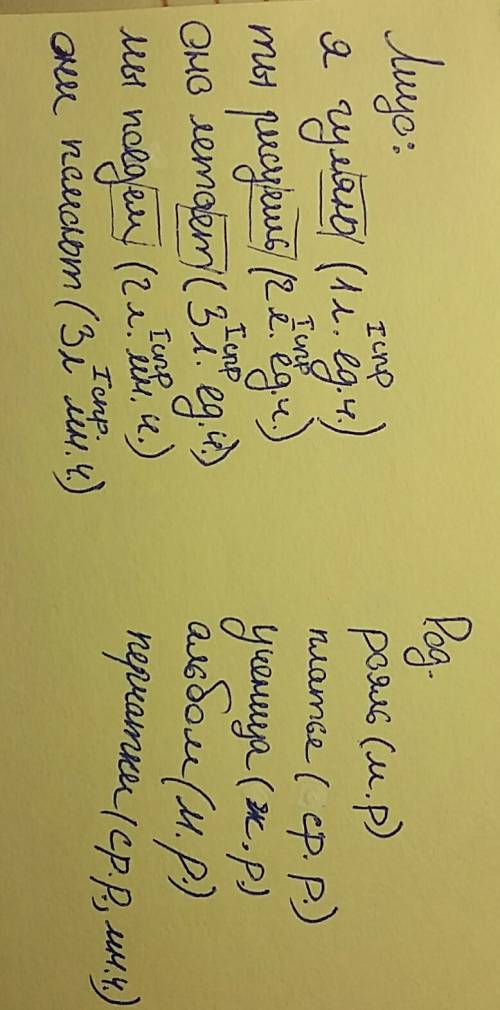 Лицо:
я гуляю (1л. ед.ч.) I спр
ты рисуешь (2л. ед.ч.) I спр
оно летает (3л. ед.ч.) I спр
мы поедем (2л. мн.ч.) I спр
они помоют (3л мн.ч.) I спр.
Род.
рояль (м.р)
платье (ср.р.)
ученица (ж.р)
альбом (м.р.)
перчатки (ср.р., мн.ч.)